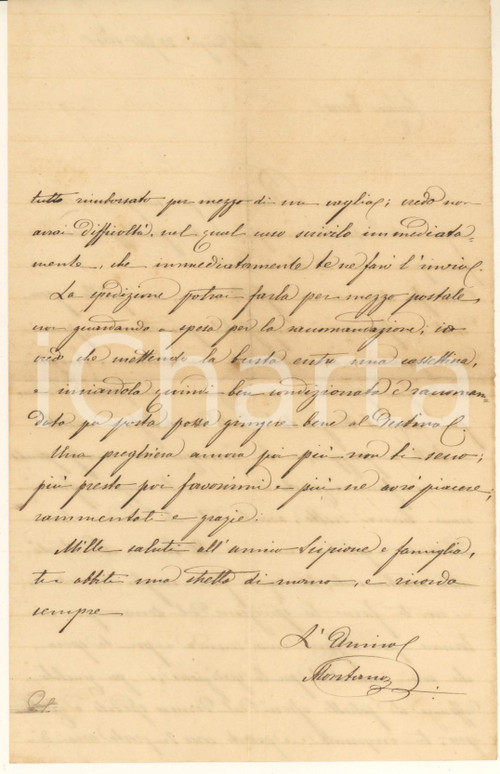 tutto rimborsato per mezzo di un vaglia; credo non
avrai difficoltà, nel qual caso scrivilo immediata=
mente, che immediatamente te ne farò l'invio.
La spedizione potrai farla per mezzo postale,
non guardando a spesa per la raccomandazione; io
credo che mettendo la busta entro una cassettina,
e inviandola quindi ben condizionata e raccoman=
data per posta possa giungere bene al Destino.
Una preghiera ancora poi più non ti secco;
più presto poi favorirmi e più ne avrò piacere;
rammentati e grazie.
Mille saluti all'amico Scipione e famiglia,
tu abbiti una stretta di mano, e ricorda
sempre
L'Amico
iCharta